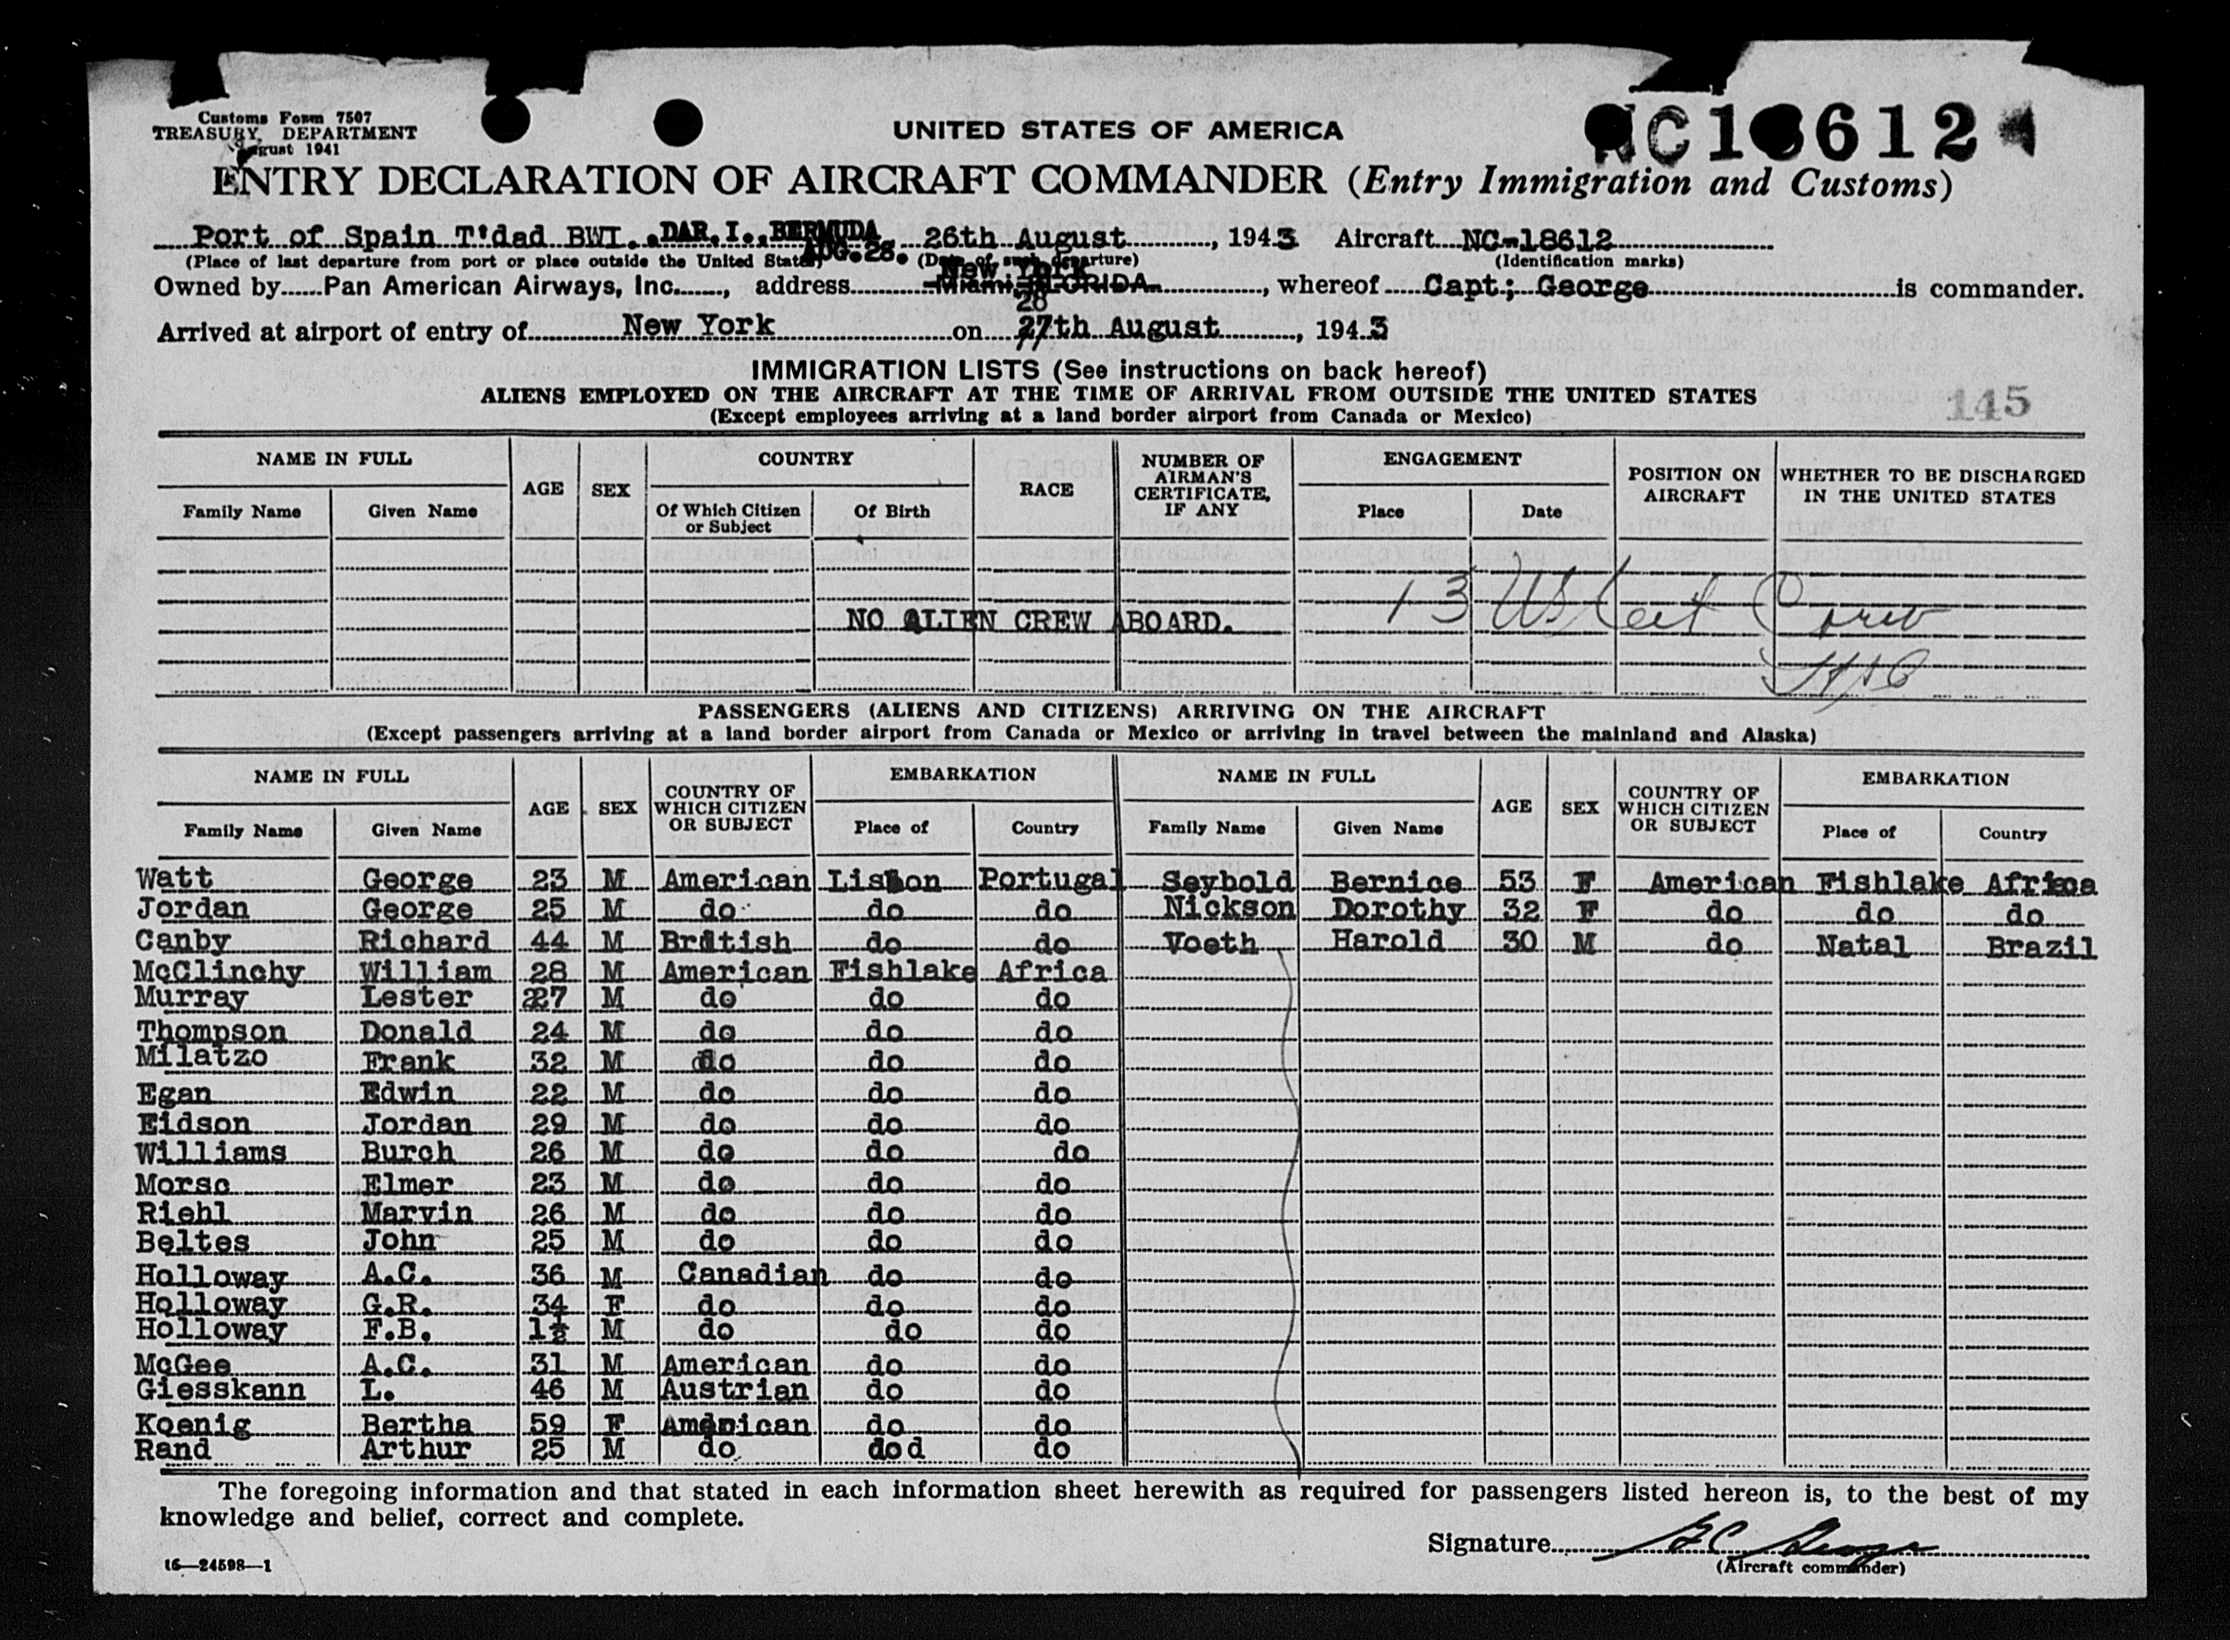 Customs Form 7507
TREASURY DEPARTMENT
August 1941
UNITED STATES OF AMERICA
NC18612
ENTRY DECLARATION OF AIRCRAFT COMMANDER (Entry Immigration and Customs)
Port of Spain T'dad BWI. DAR. I., BERMUDA 26th August, 1943 Aircraft NC-18612
AUG. 28.
(Place of last departure from port or place outside the United States) (Date of such departure) (Identification marks)
New York
Owned by Pan American Airways, Inc., address Miami, FLORIDA, whereof Capt; George is commander.
28
Arrived at airport of entry of New York on 27th August, 1943
IMMIGRATION LISTS (See instructions on back hereof)
ALIENS EMPLOYED ON THE AIRCRAFT AT THE TIME OF ARRIVAL FROM OUTSIDE THE UNITED STATES
(Except employees arriving at a land border airport from Canada or Mexico)
145
NAME IN FULL AGE SEX COUNTRY RACE NUMBER OF AIRMAN'S CERTIFICATE, IF ANY ENGAGEMENT POSITION ON AIRCRAFT WHETHER TO BE DISCHARGED IN THE UNITED STATES
Family Name Given Name Of Which Citizen or Subject Of Birth Place Date
NO ALIEN CREW ABOARD. 13 US Cert Crew
PASSENGERS (ALIENS AND CITIZENS) ARRIVING ON THE AIRCRAFT
(Except passengers arriving at a land border airport from Canada or Mexico or arriving in travel between the mainland and Alaska)
NAME IN FULL AGE SEX COUNTRY OF WHICH CITIZEN OR SUBJECT EMBARKATION NAME IN FULL AGE SEX COUNTRY OF WHICH CITIZEN OR SUBJECT EMBARKATION
Family Name Given Name Place of Country Family Name Given Name Place of Country
Watt George 23 M American Lisbon Portugal Seybold Bernice 53 F American Fishlake Africa
Jordan George 25 M do do do Nickson Dorothy 32 F do do do
Canby Richard 44 M British do do Voeth Harold 30 M do Natal Brazil
McClinchy William 28 M American Fishlake Africa
Murray Lester 27 M do do do
Thompson Donald 24 M do do do
Milatzo Frank 32 M do do do
Egan Edwin 22 M do do do
Eidson Jordan 29 M do do do
Williams Burch 26 M do do do
Morse Elmer 23 M do do do
Riehl Marvin 26 M do do do
Beltes John 25 M do do do
Holloway A.C. 36 M Canadian do do
Holloway G.R. 34 F do do do
Holloway F.B. 1½ M do do do
McGee A.C. 31 M American do do
Giesskann L. 46 M Austrian do do
Koenig Bertha 59 F American do do
Rand Arthur 25 M do dod do
The foregoing information and that stated in each information sheet herewith as required for passengers listed hereon is, to the best of my
knowledge and belief, correct and complete.
Signature
(Aircraft commander)
16—24598—1